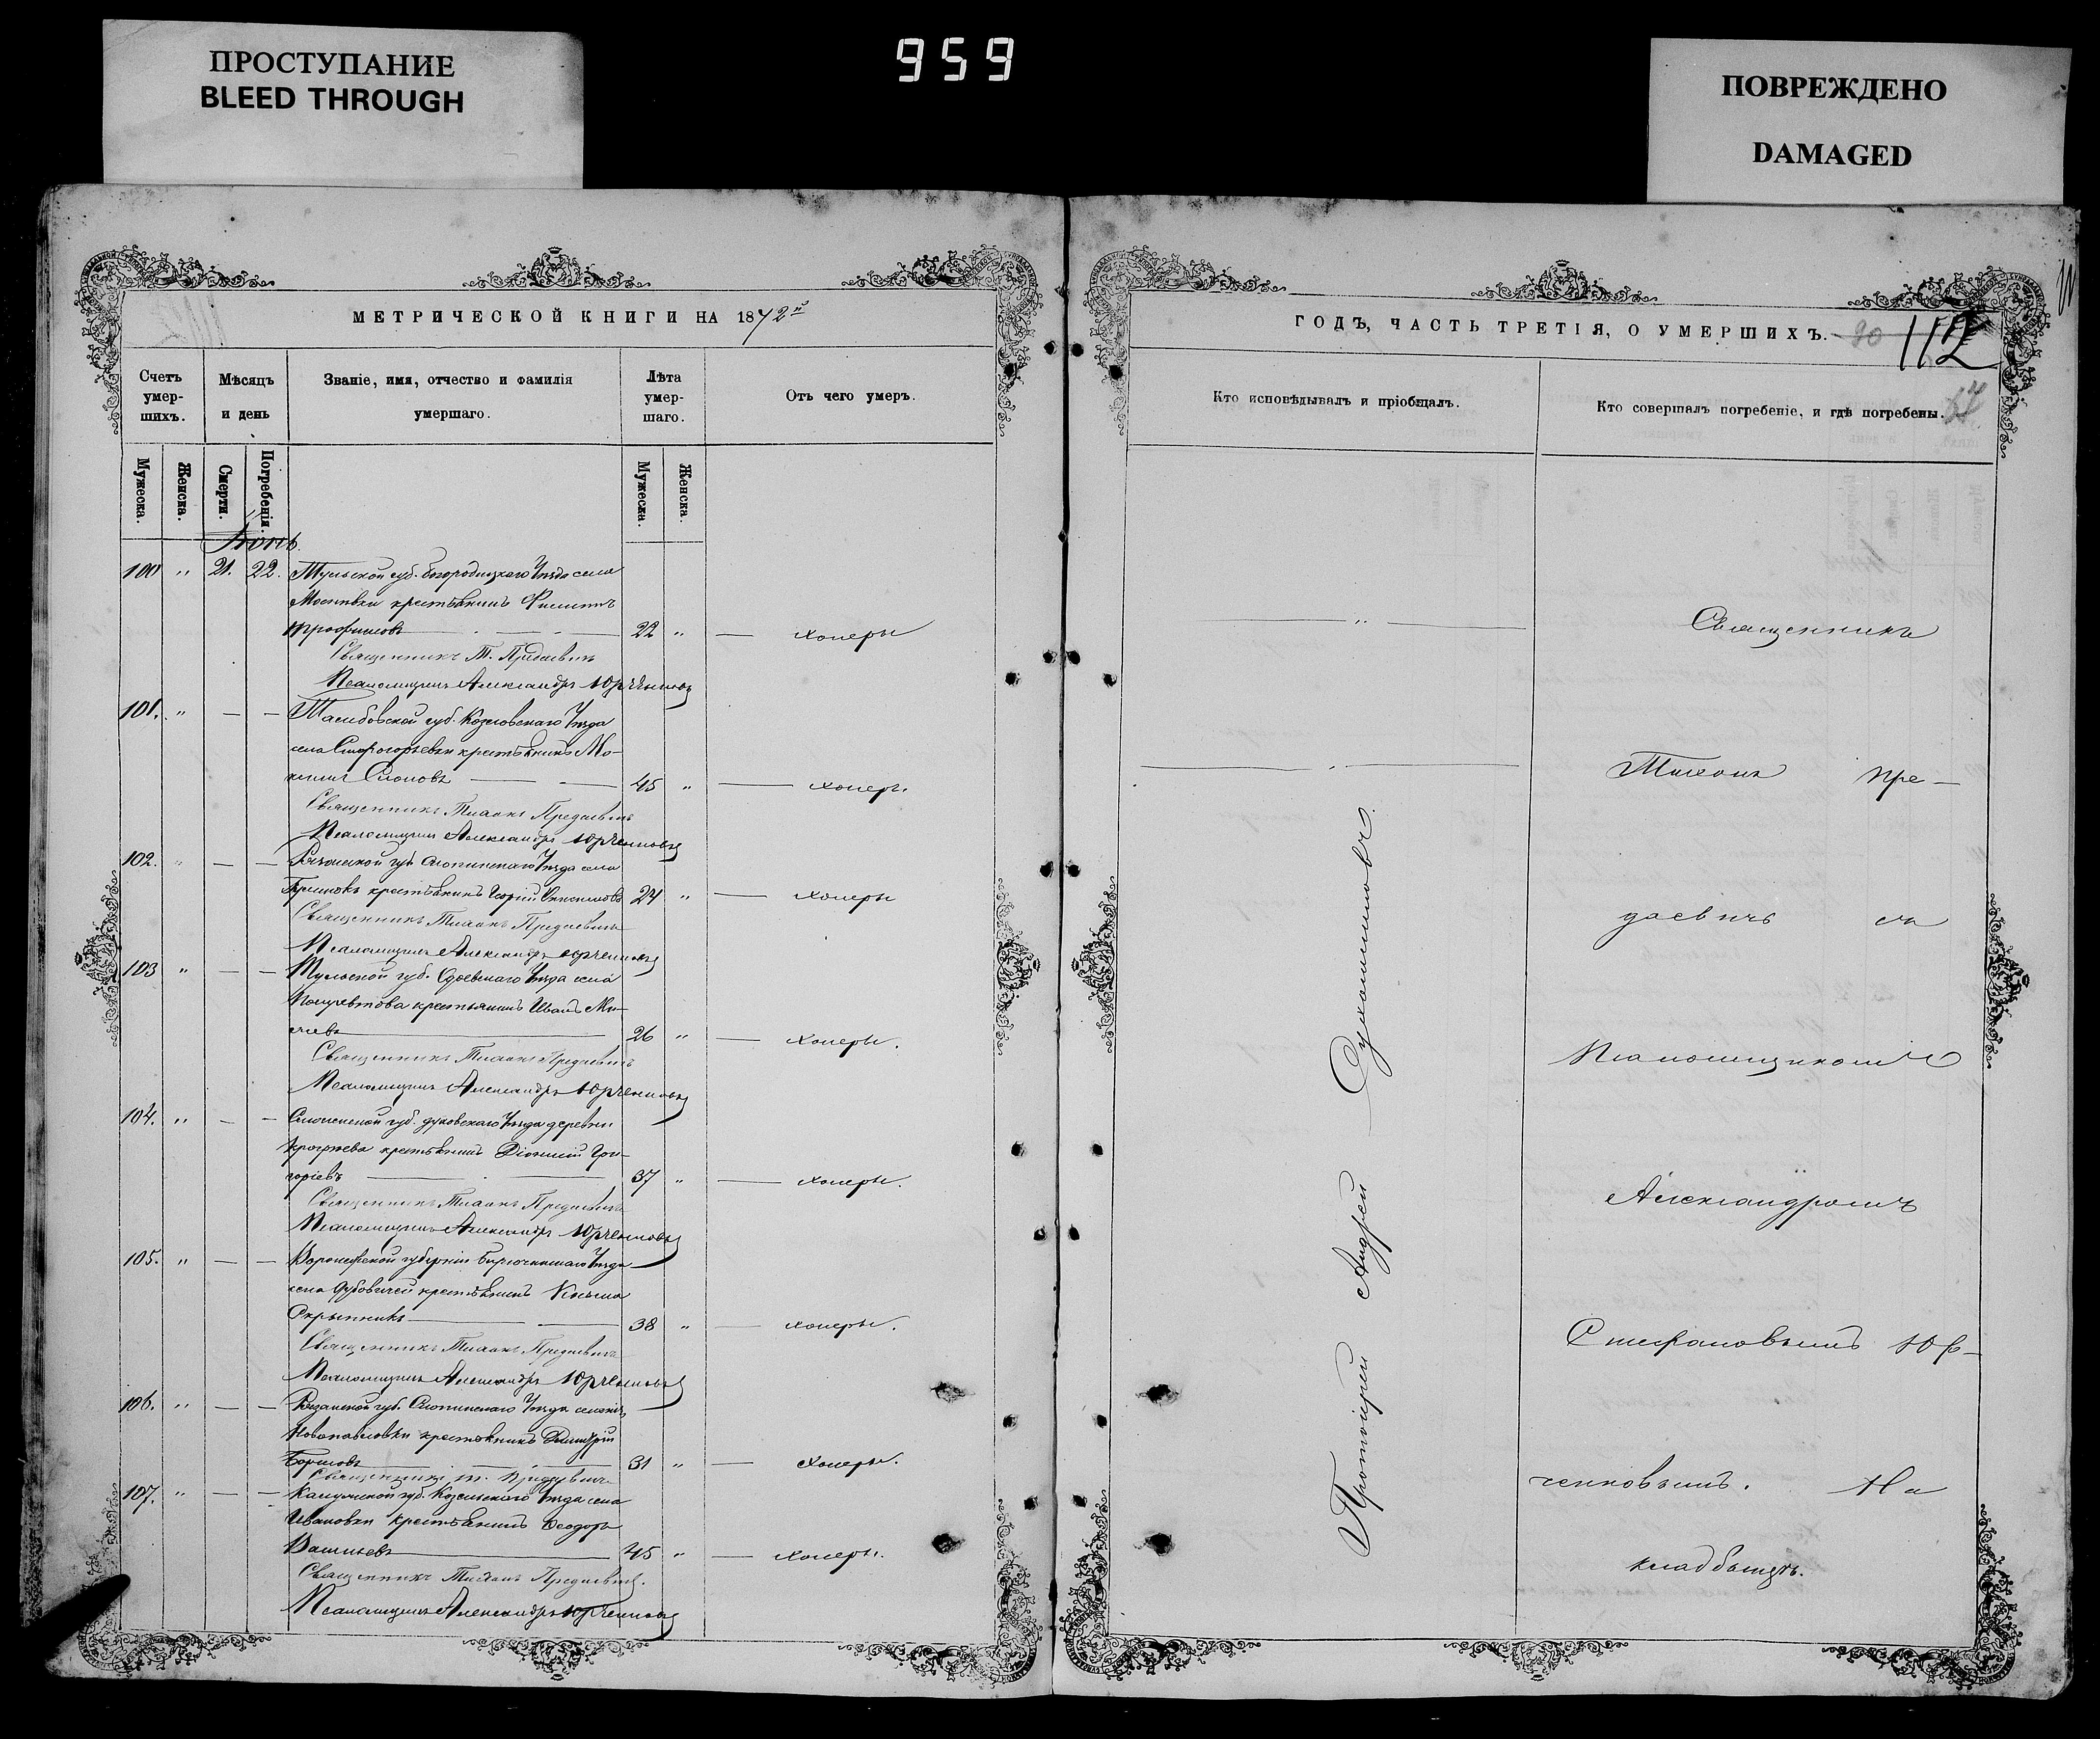 ПРОСТУПАНИЕ
BLEED THROUGH
959
ПОВРЕЖДЕНО
DAMAGED
МЕТРИЧЕСКОЙ КНИГИ НА 1872й
Счетъ умер-шихъ.
Мѣсяцъ и день
Званіе, имя, отчество и фамилія умершаго.
Лѣта умер-шаго.
Отъ чего умеръ.
Мужеска. Женска. Смерти. Погребенія. Мужеска. Женска.
Іюнь.
100 " 21. 22. Тульской губ. Богородицкаго Уѣзда села
крестьянинъ Филиппъ
Трофимовъ — 22 " — холеры
Священникъ Т. Предаевичъ
Псаломщикъ Александръ Юрченковъ
101. " — — Тамбовской губ. Козловскаго Уѣзда
села крестьянинъ
45 " — холеры
Священникъ Тихонъ Предаевичъ
Псаломщикъ Александръ Юрченковъ
102. " — — Рязанской губ. Скопинскаго Уѣзда села
крестьянинъ Георгій 24 " — холеры
Священникъ Тихонъ Предаевичъ
Псаломщикъ Александръ Юрченковъ
103 " — — Тульской губ. Одоевскаго Уѣзда села
крестьянинъ Иванъ
26 " — холеры.
Священникъ Тихонъ Предаевичъ
Псаломщикъ Александръ Юрченковъ
104. " — — Смоленской губ. Уѣзда деревни
крестьянинъ Діонисій Гри-
горіевъ — 37 " — холеры.
Священникъ Тихонъ Предаевичъ
Псаломщикъ Александръ Юрченковъ
105. " — — Воронежской губерніи Бирюченскаго Уѣзда
села крестьянинъ Козьма
Скрынникъ — 38 " — холеры.
Священникъ Тихонъ Предаевичъ
Псаломщикъ Александръ Юрченковъ
106. " — — Рязанской губ. Скопинскаго Уѣзда
Новопавловки крестьянинъ Димитрій
Борисовъ — 31 " — холеры.
Священникъ Т. Предаевичъ
107. " — — Калужской губ. Козельскаго Уѣзда села
Ивановки крестьянинъ Ѳеодоръ
Васильевъ — 45 " — холеры.
Священникъ Тихонъ Предаевичъ.
Псаломщикъ Александръ Юрченковъ
ГОДЪ, ЧАСТЬ ТРЕТІЯ, О УМЕРШИХЪ.
90 112
Кто исповѣдывалъ и пріобщалъ.
Кто совершалъ погребеніе, и гдѣ погребены.
Протоіерей Андрей Сухомлиновъ.
Священникъ
Тихонъ Пре-
даевичъ съ
Псаломщикомъ
Александромъ
Стефановымъ Юр-
ченковымъ. На
кладбищѣ.